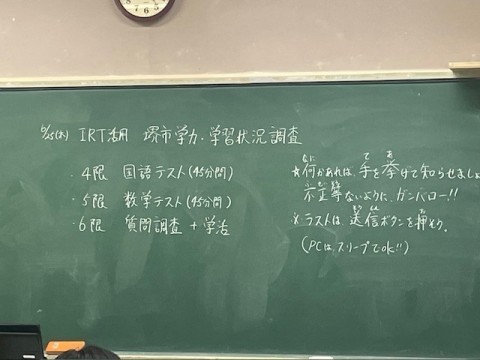 6/25(水) IRT活用 堺市学力・学習状況調査
・4限 国語テスト(45分間)
・5限 数学テスト(45分間)
・6限 質問調査 + 学活
★何かあれば 手を挙げて知らせましょ
不正等ないように、ガンバロー!!
※ラストは 送信ボタンを押そう。
(PCは スリープでok!!)